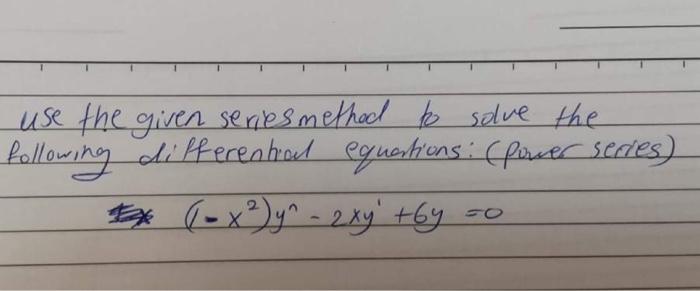 use the given series method to solve the
following differential equations: (power series)
(1-x²)y" - 2xy' +6y =0